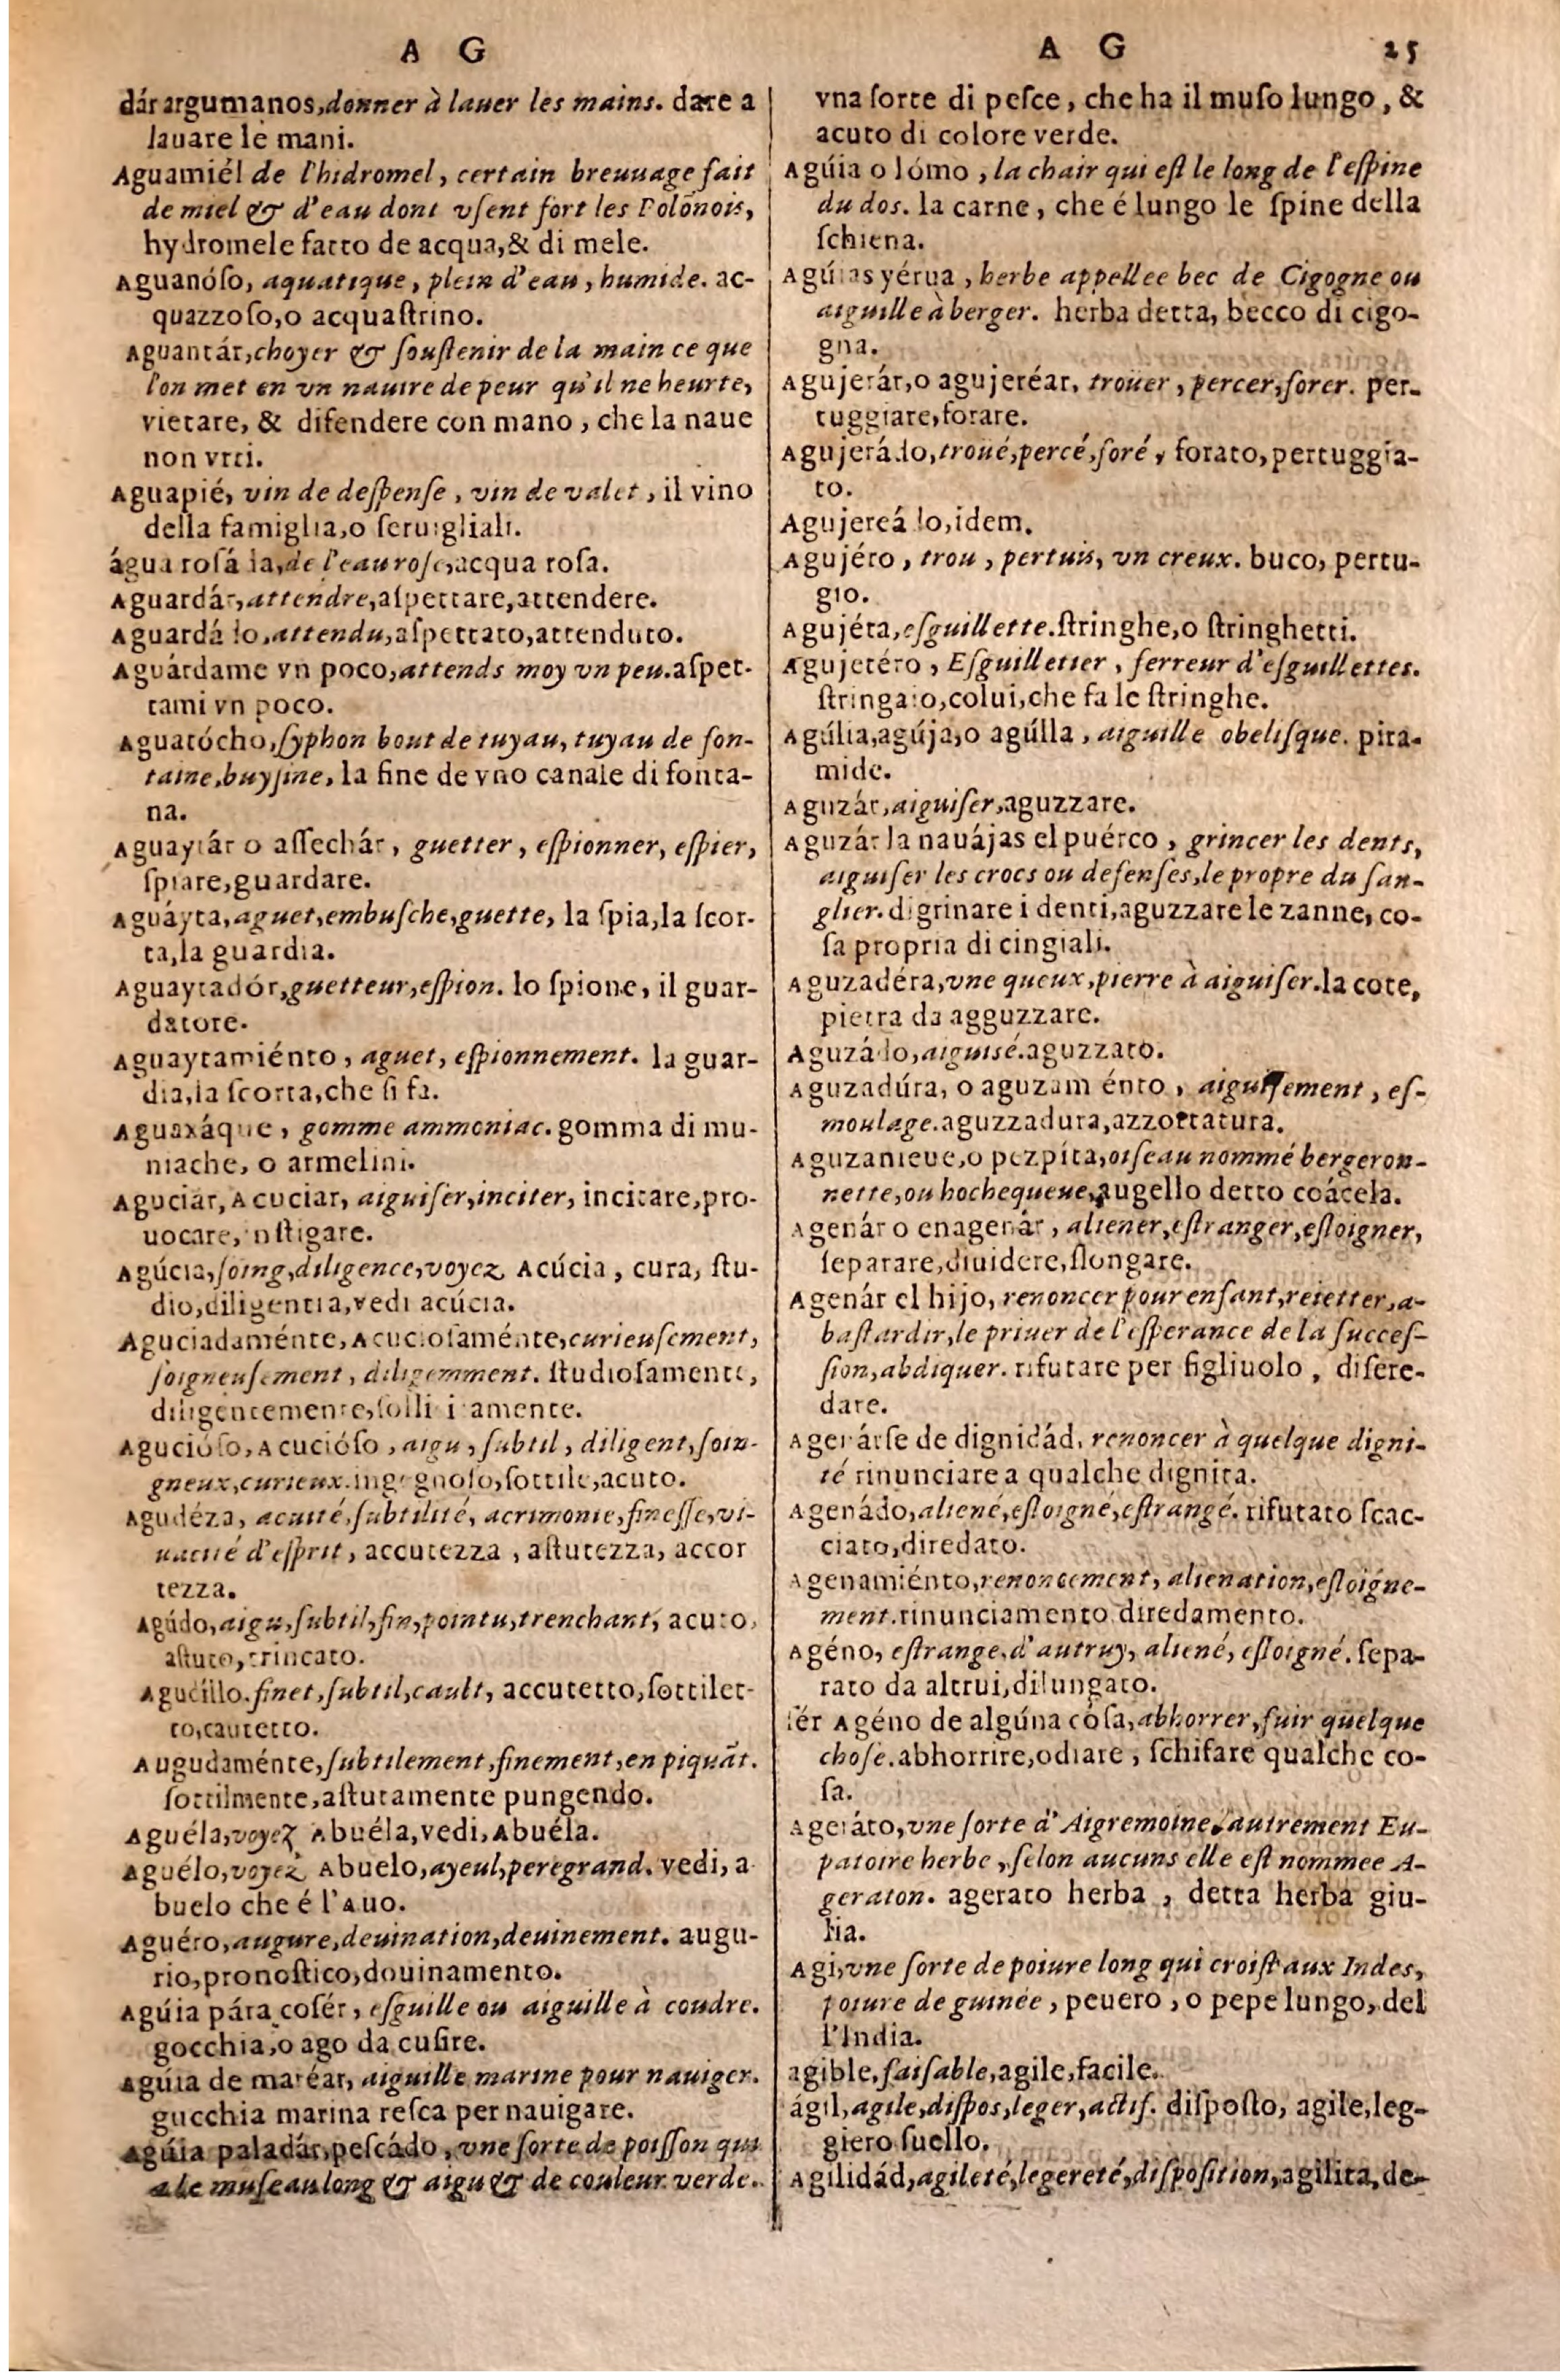 A G
dár argumanos, donner à lauer les mains. dare a
lauare le mani.
Aguamiél de l'hidromel, certain breuuage fait
de miel & d'eau dont vſent fort les Polõnois,
hydromele fatto de acqua, & di mele.
Aguanóſo, aquatique, plein d'eau, humide. ac-
quazzoſo, o acquaſtrino.
Aguantár, choyer & ſouſtenir de la main ce que
l'on met en vn nauire de peur qu'il ne heurte,
vietare, & difendere con mano, che la naue
non vrti.
Aguapié, vin de deſpenſe, vin de valet, il vino
della famiglia, o ſeruigliali.
água roſáda, de l'eau roſe, acqua roſa.
Aguardár, attendre, aſpettare, attendere.
Aguardádo, attendu, aſpettato, attenduto.
Aguárdame vn poco, attends moy vn peu. aſpet-
tami vn poco.
Aguatócho, ſyphon bout de tuyau, tuyau de fon-
taine, buyſine, la fine de vno canale di fonta-
na.
Aguaytár o aſſechár, guetter, eſpionner, eſpier,
ſpiare, guardare.
Aguáyta, aguet, embuſche, guette, la ſpia, la ſcor-
ta, la guardia.
Aguaytadór, guetteur, eſpion. lo ſpione, il guar-
datore.
Aguaytamiénto, aguet, eſpionnement. la guar-
dia, la ſcorta, che ſi fa.
Aguaxáque, gomme ammoniac. gomma di mu-
niache, o armelini.
Aguciar, Acuciar, aiguiſer, inciter, incitare, pro-
uocare, inſtigare.
Agúcia, ſoing, diligence, voyez Acúcia, cura, ſtu-
dio, diligentia, vedi acúcia.
Aguciadaménte, Acucioſaménte, curieuſement,
ſoigneuſement, diligemment. ſtudioſamente,
diligentemente, ſollicitamente.
Agucióſo, Acucióſo, aigu, ſubtil, diligent, ſoin-
gneux, curieux. ingegnoſo, ſottile, acuto.
Agudéza, acuité, ſubtilité, acrimonie, fineſſe, vi-
uacité d'eſprit, accutezza, aſtutezza, accor
tezza.
Agúdo, aigu, ſubtil, fin, pointu, trenchant, acuto,
aſtuto, trincato.
Agudíllo. finet, ſubtil, cault, accutetto, ſottilet-
to, cautetto.
Augudaménte, ſubtilement, finement, en piquãt.
ſottilmente, aſtutamente pungendo.
Aguéla, voyez Abuéla, vedi, Abuéla.
Aguélo, voyez Abuelo, ayeul, peregrand. vedi, a
buelo che é l'Auo.
Aguéro, augure, deuination, deuinement. augu-
rio, pronoſtico, douinamento.
Agúia pára coſér, eſguille ou aiguille à coudre.
gocchia, o ago da cuſire.
Agúia de maréar, aiguille marine pour nauiger.
gucchia marina reſca per nauigare.
Agúia paladár, peſcádo, vne ſorte de poiſſon qui
a le muſeau long & aigu & de couleur verde.
A G 25
vna ſorte di peſce, che ha il muſo lungo, &
acuto di colore verde.
Agúia o lómo, la chair qui eſt le long de l'eſpine
du dos. la carne, che é lungo le ſpine della
ſchiena.
Agúias yérua, herbe appellee bec de Cigogne ou
aiguille à berger. herba detta, becco di cigo-
gna.
Agujerár, o agujeréar, troüer, percer, forer. per-
tuggiare, forare.
Agujerádo, troüé, percé, foré, forato, pertuggia-
to.
Agujereádo, idem.
Agujéro, trou, pertuis, vn creux. buco, pertu-
gio.
Agujéta, eſguillette. ſtringhe, o ſtringhetti.
Agujetéro, Eſguilletier, ferreur d'eſguillettes.
ſtringaio, colui, che fa le ſtringhe.
Agúlia, agúja, o agúlla, aiguille obeliſque. pira-
mide.
Aguzár, aiguiſer, aguzzare.
Aguzár la nauájas el puérco, grincer les dents,
aiguiſer les crocs ou defenſes, le propre du ſan-
glier. digrinare i denti, aguzzare le zanne, co-
ſa propria di cingiali.
Aguzadéra, vne queux, pierre à aiguiſer. la cote,
pietra da agguzzare.
Aguzádo, aiguisé. aguzzato.
Aguzadúra, o aguzamiénto, aiguiſement, eſ-
moulage. aguzzadura, azzottatura.
Aguzanieue, o pezpíta, oiſeau nommé bergeron-
nette, ou hochequeue, augello detto coácela.
Agenár o enagenár, aliener, eſtranger, eſloigner,
ſeparare, diuidere, ſlongare.
Agenár el hijo, renoncer pour enfant, reietter, a-
baſtardir, le priuer de l'eſperance de la ſucceſ-
ſion, abdiquer. rifutare per figliuolo, diſere-
dare.
Agenárſe de dignidád, renoncer à quelque digni-
té rinunciare a qualche dignita.
Agenádo, aliené, eſloigné, eſtrangé. rifutato ſcac-
ciato, diredato.
Agenamiénto, renoncement, alienation, eſloigne-
ment. rinunciamento diredamento.
Agéno, eſtrange, d'autruy, aliené, eſloigné. ſepa-
rato da altrui, dilungato.
ſér Agéno de algúna cóſa, abhorrer, fuir quelque
choſe. abhorrire, odiare, ſchifare qualche co-
ſa.
Ageráto, vne ſorte d'Aigremoine, autrement Eu-
patoire herbe, ſelon aucuns elle eſt nommee A-
geraton. agerato herba, detta herba giu-
lia.
Agi, vne ſorte de poiure long qui croiſt aux Indes,
poiure de guinée, peuero, o pepe lungo, del
l'India.
agible, faiſable, agile, facile.
ágil, agile, diſpos, leger, actif. diſpoſto, agile, leg-
giero ſuello.
Agilidád, agileté, legereté, diſpoſition, agilita, de-